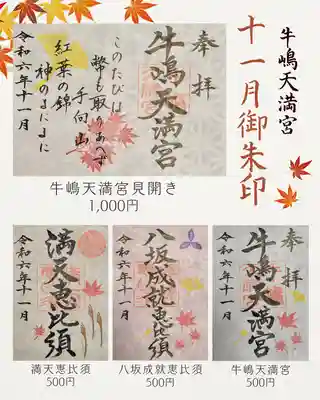 牛嶋天満宮
十一月御朱印
奉拝
牛嶋天満宮
このたびは
幣も取りあへず
手向山
紅葉の錦
神のまにまに
令和六年十一月
牛嶋天満宮見開き
1,000円
満天恵比須
令和六年十一月
八坂成就恵比須
令和六年十一月
奉拝
牛嶋天満宮
令和六年十一月
満天恵比須
500円
八坂成就恵比須
500円
牛嶋天満宮
500円